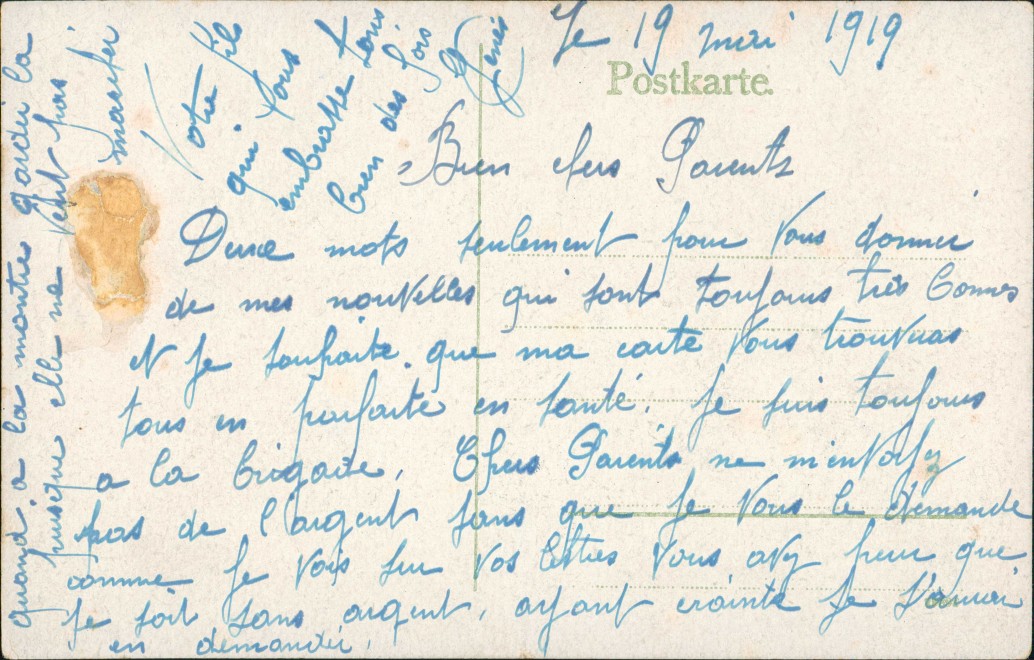 Le 19 mai 1919
Postkarte.
Bien chers Parents
Deux mots seulement pour Vous donner
de mes nouvelles qui sont toujours très bonnes
et je souhaite que ma carte Vous trouveras
tous en parfaite en santé. Je suis toujours
a la brigade. Chers Parents ne m'envoyez
pas de l'argent sans que je Vous le demande
comme je vois sur vos lettres Vous avez peur que
je soit sans argent, ayant crainte je
en demander.
quand a la montre garder la
puisque elle ne veut pas
marcher
Votre fils
qui Vous
embrasse tous
bien des fois